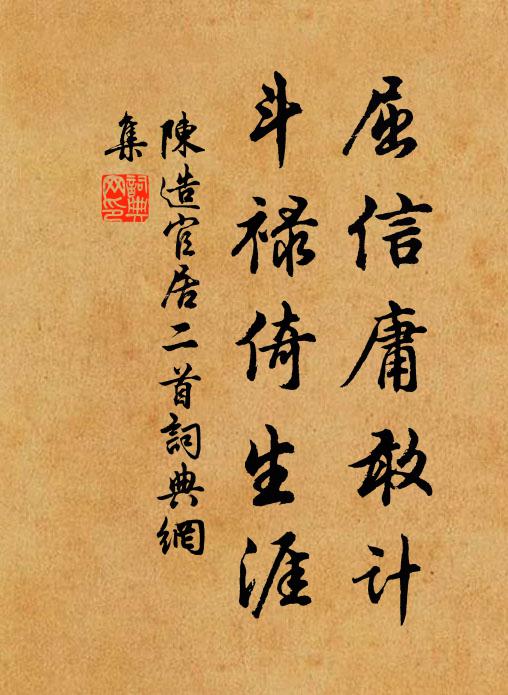 屈信庸敢计
斗禄倚生涯
陳造官居二首詞典網
集
詞典
网印